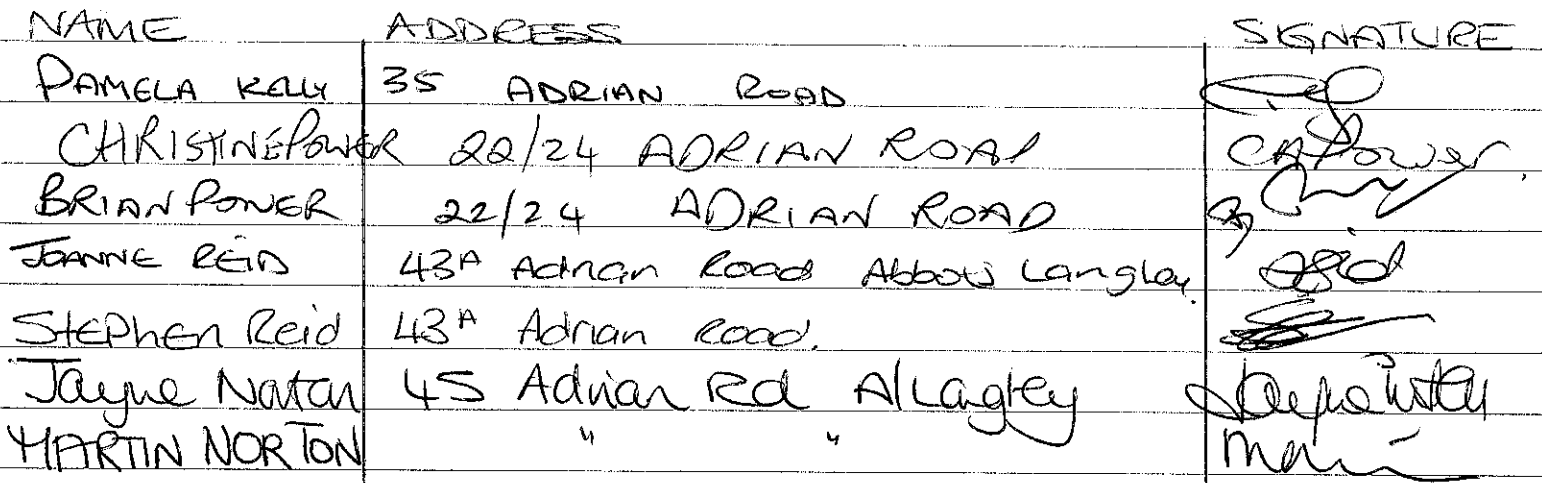 NAME ADDRESS SIGNATURE
PAMELA KELLY 35 ADRIAN ROAD
CHRISTINE POWER 22/24 ADRIAN ROAD CAPower
BRIAN POWER 22/24 ADRIAN ROAD
JOANNE REID 43A Adrian Road Abbots Langley.
Stephen Reid 43A Adrian Road.
Jayne Norton 45 Adrian Rd A/Langley
MARTIN NORTON " "